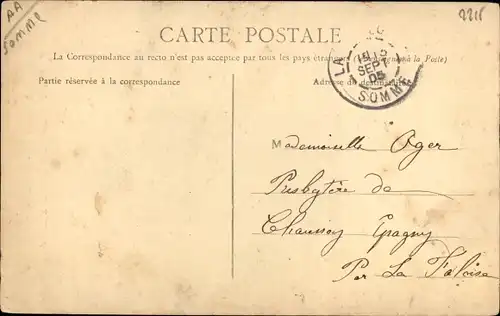 AA
SOMME
2215
CARTE POSTALE
La Correspondance au recto n'est pas acceptée par tous les pays étrangers à la Poste)
Partie réservée à la correspondance
Adresse du destinataire
LA
15
SEPT
05
SOMME
Mademoiselle Oger
Presbytère de
Chaussoy Epagny
Par La Faloise